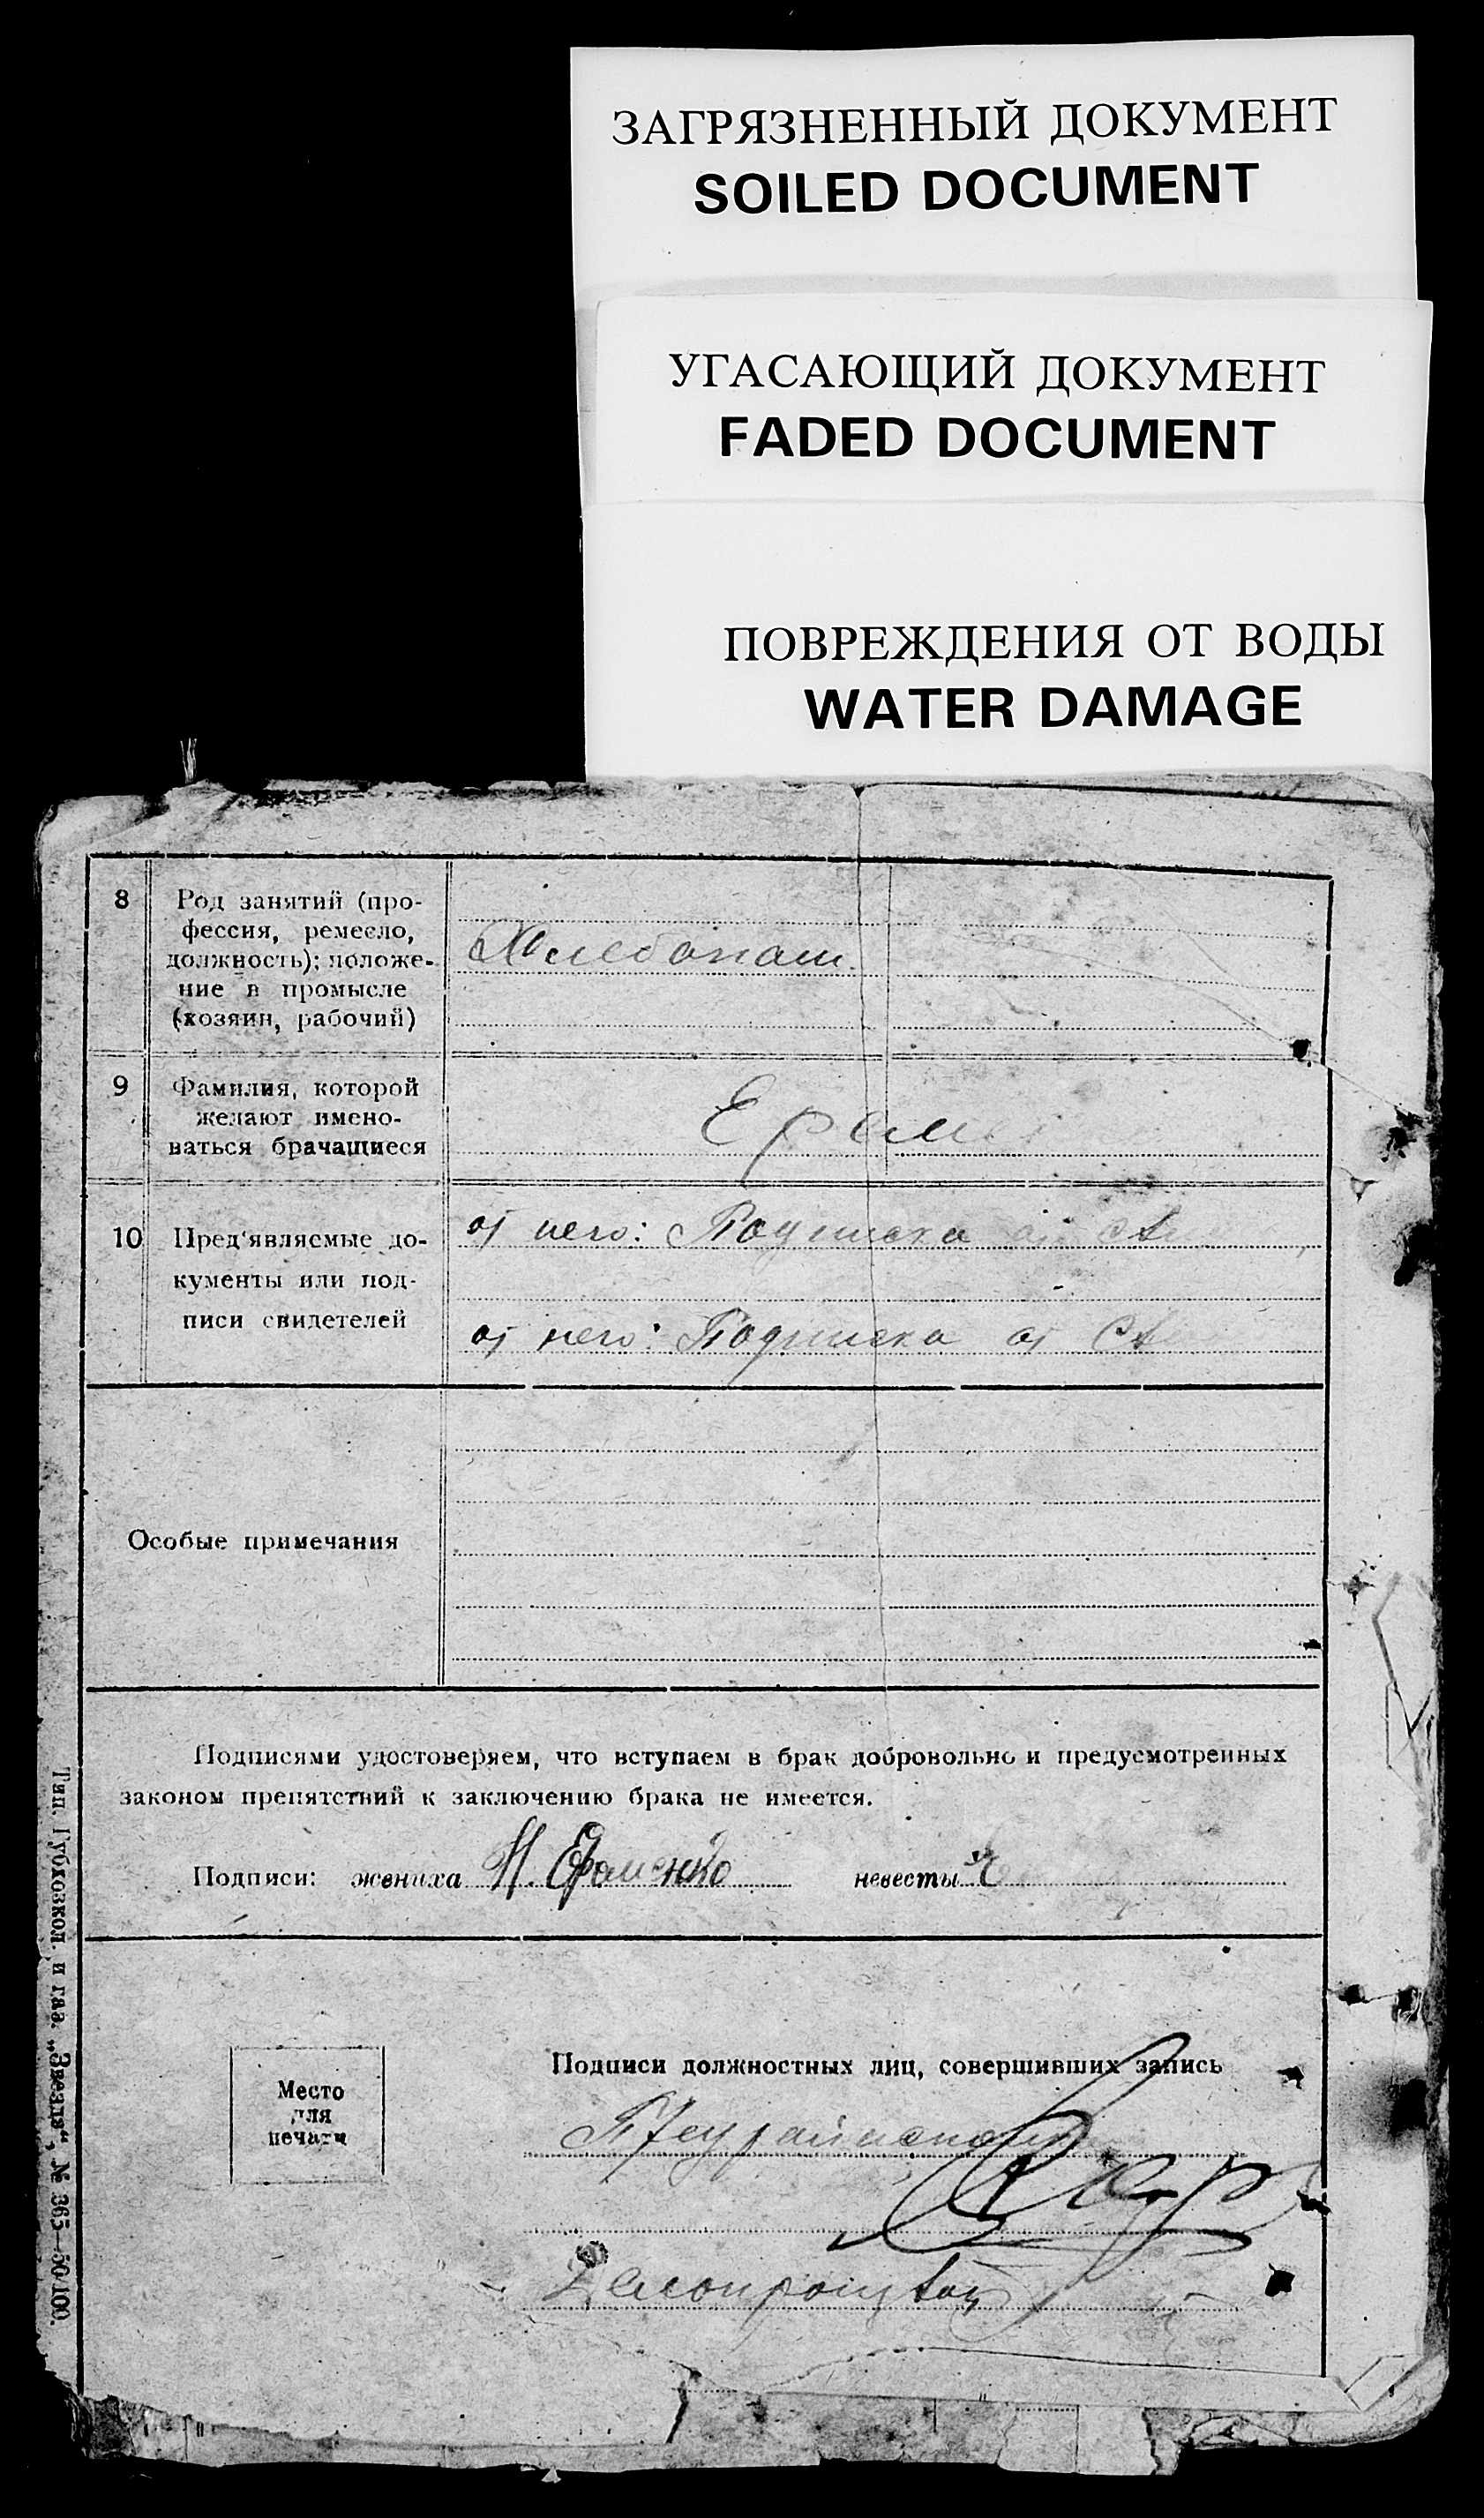 ЗАГРЯЗНЕННЫЙ ДОКУМЕНТ
SOILED DOCUMENT
УГАСАЮЩИЙ ДОКУМЕНТ
FADED DOCUMENT
ПОВРЕЖДЕНИЯ ОТ ВОДЫ
WATER DAMAGE
8
Род занятий (про-
фессия, ремесло,
должность); положе-
ние в промысле
(хозяин, рабочий)
Хлебопаш.
9
Фамилия, которой
желают имено-
ваться брачащиеся
10
Пред'являемые до-
кументы или под-
писи свидетелей
от него: Подписка от
от него: Подписка от
Особые примечания
Подписями удостоверяем, что вступаем в брак добровольно и предусмотренных
законом препятствий к заключению брака не имеется.
Подписи: жениха Н. Ефоменко невесты
Подписи должностных лиц, совершивших запись
Место
для
печати
Делопроизвод
Тип. Губхозкол. и газ. „Звезда“, № 365—50/100.